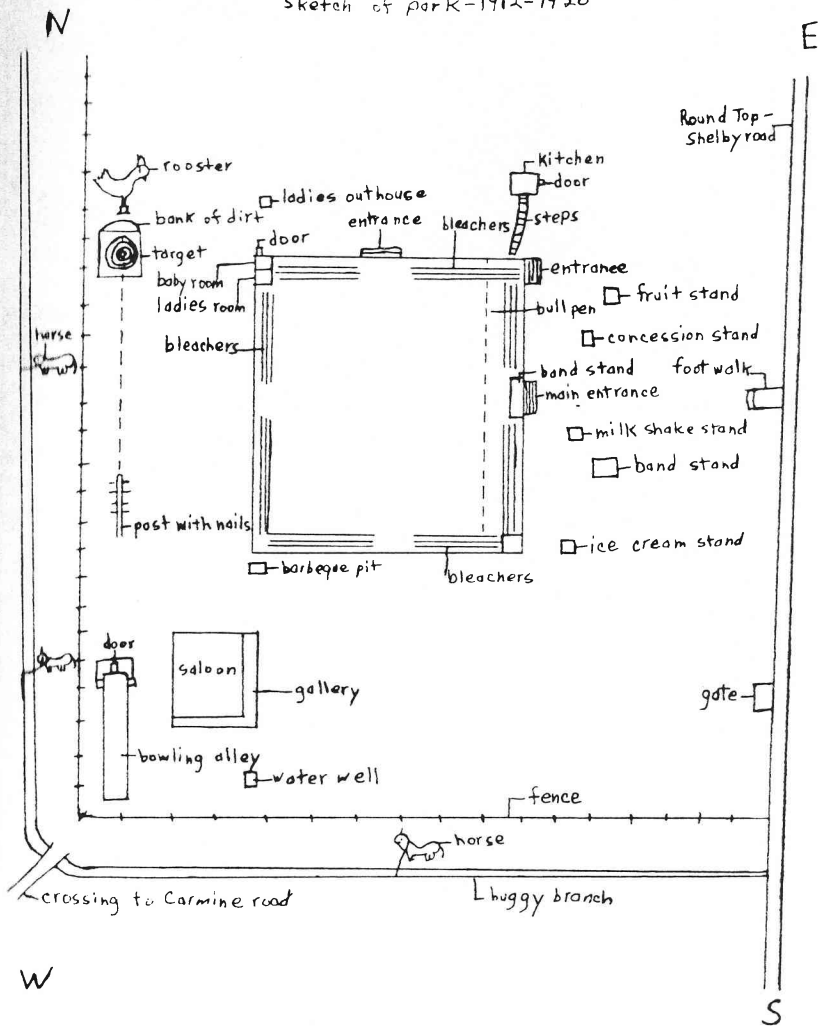 sketch of park-1912-1920
N
E
Round Top-
Shelby road
rooster
kitchen
door
ladies outhouse
bank of dirt
entrance
bleachers
steps
door
target
entrance
baby room
ladies room
bull pen
fruit stand
horse
bleachers
concession stand
band stand
foot walk
main entrance
milk shake stand
band stand
post with nails
ice cream stand
barbeque pit
bleachers
door
saloon
gallery
gate
bowling alley
water well
fence
horse
crossing to Carmine road
buggy branch
W
S